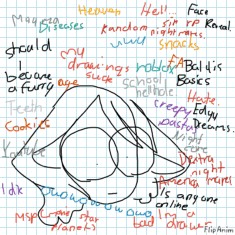 Heaven Hell... Face
Reveal.
Diseases Random
nightmares.
uwu snacks
should
I
become
a furry
my
drawings
suck
roblox
Baldis
Basics
age
school
hellhole
Hate.
Edgy
Dreams.
creepy
pasta
Teeth
Cookies
Night
Youtube
nightmare!
America
Idk
owo owo owo owo
Is anyone
online
Msp
planet)
I'm a
bad drawer
FlipAnim